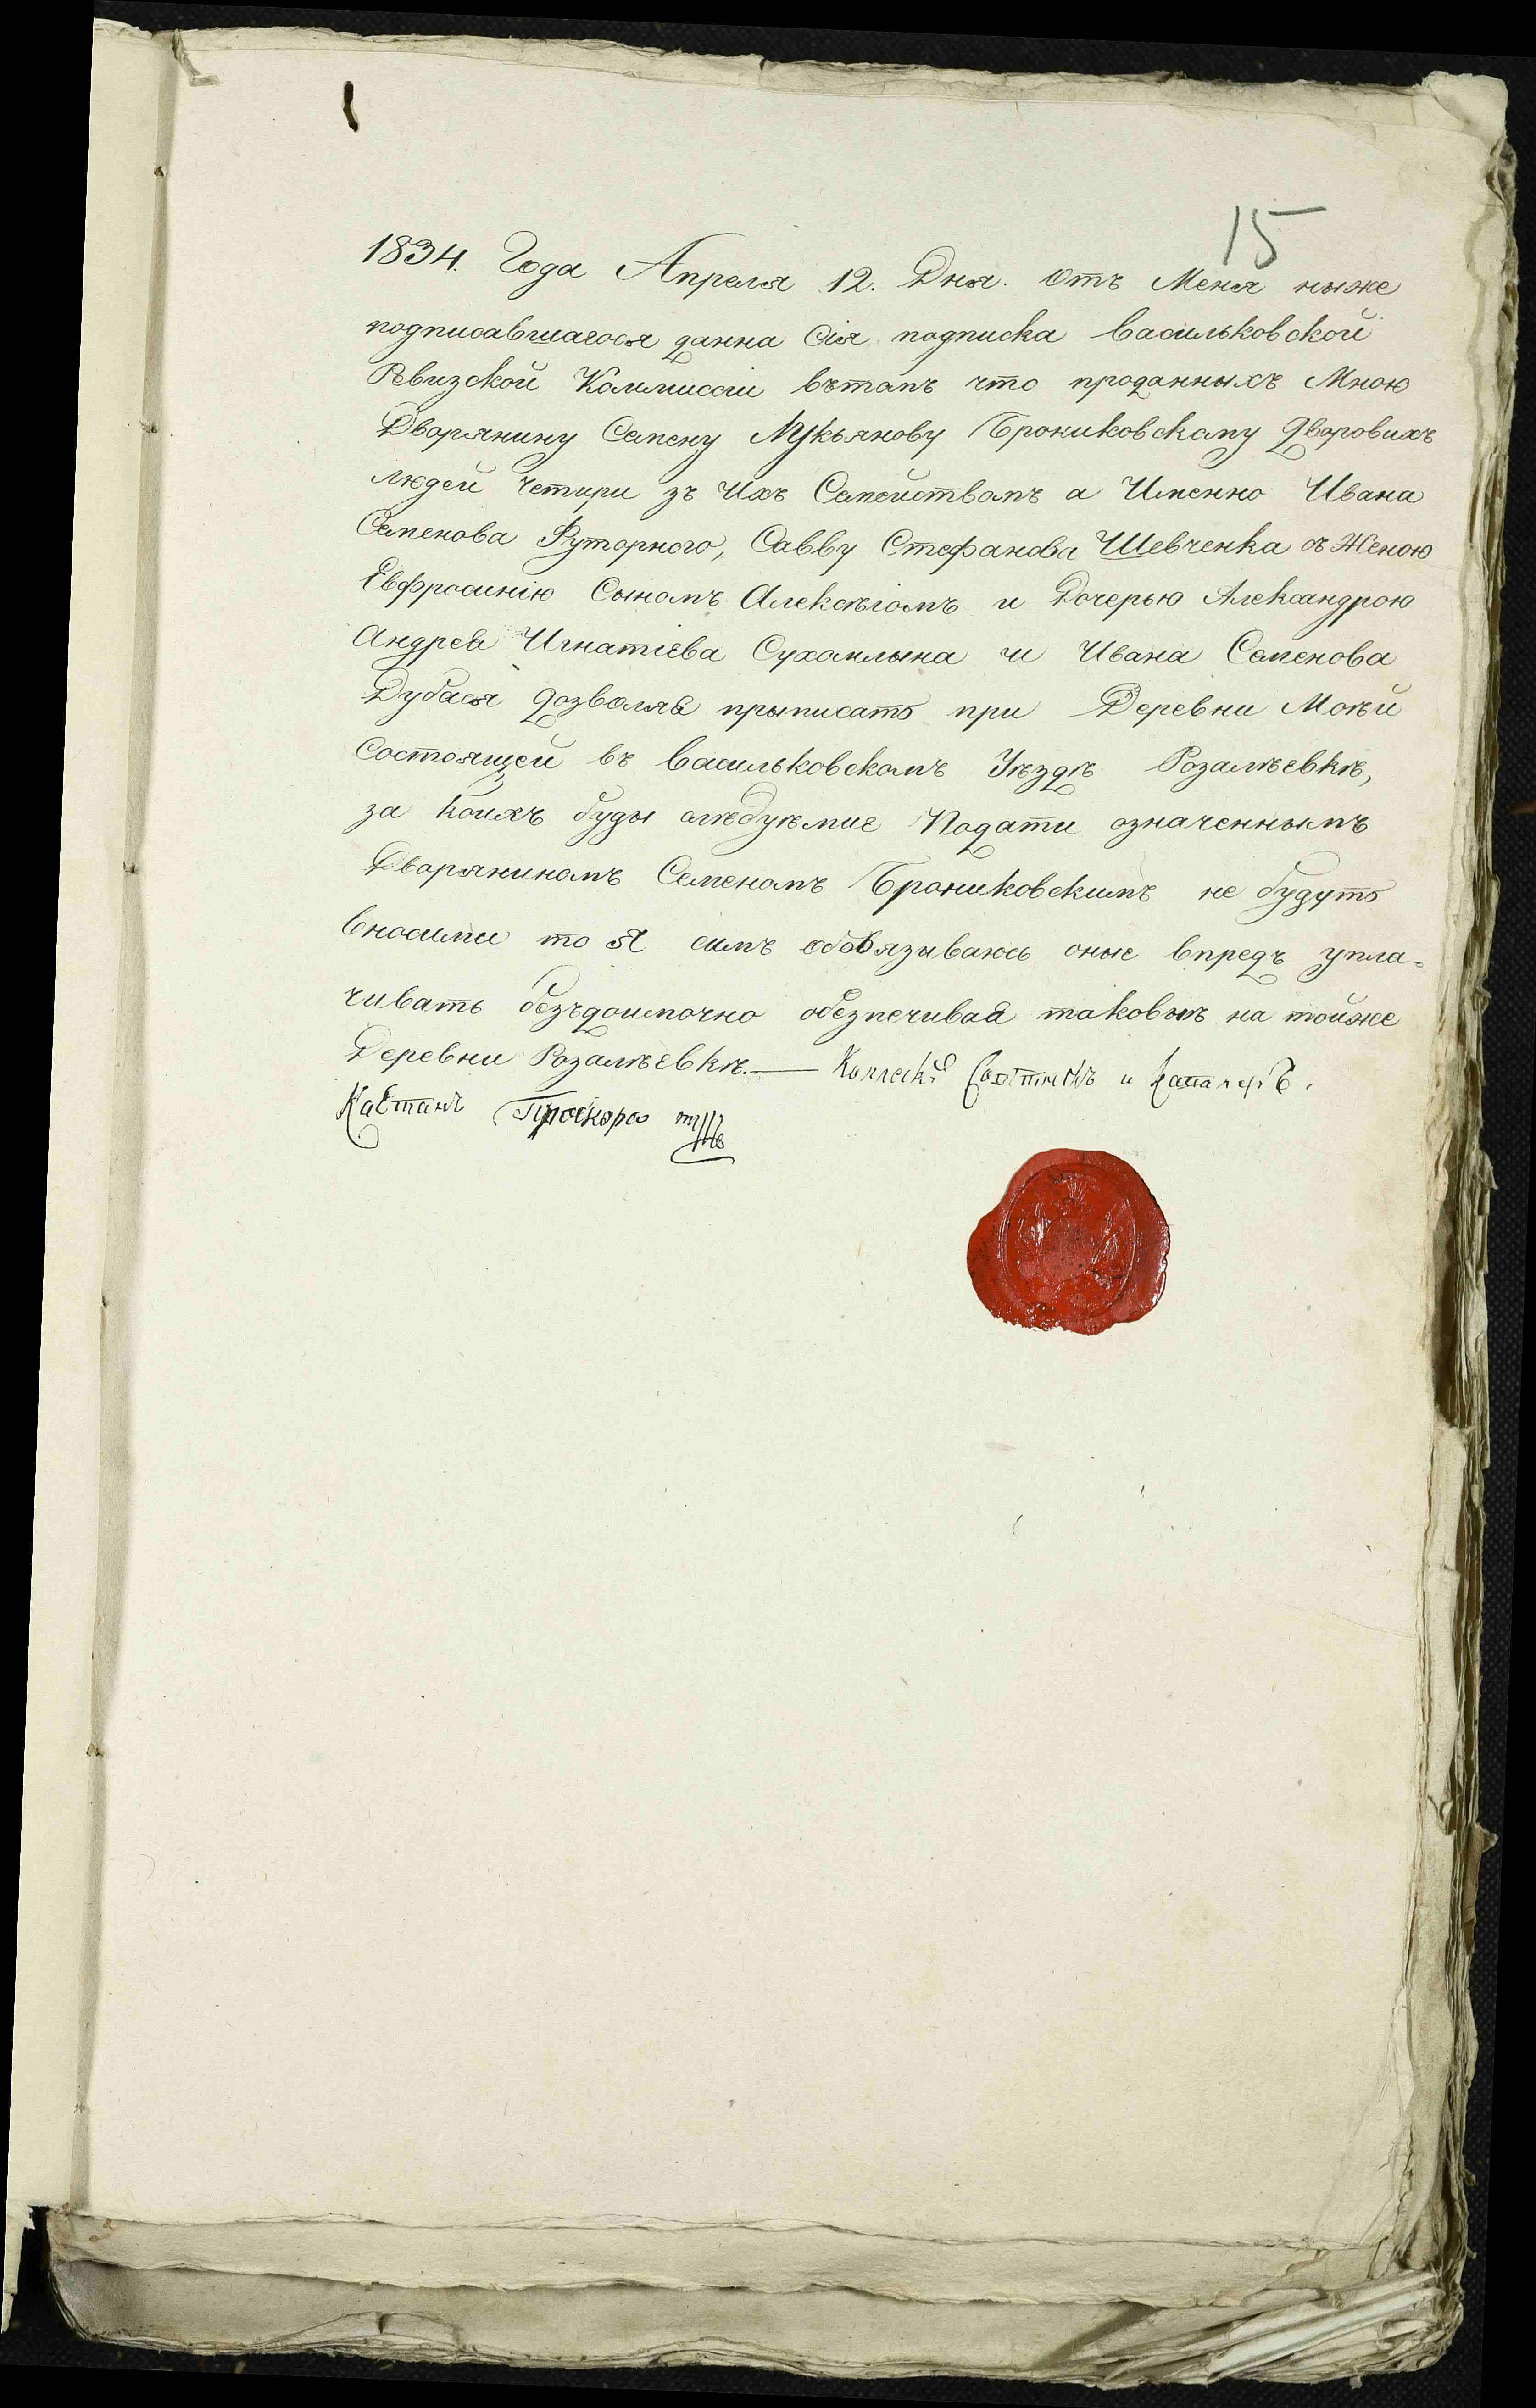 15
1834. Года Апреля 12. Дня. Отъ Меня ныже
подписавшагося данна Сія подписка Васильковской
Ревизской Коммиссіи вътомъ что проданныхъ Мною
Дворянину Семену Лукьянову Брониковскому Дворовихъ
людей Четыри зъ Ихъ Семействомъ а Именно Ивана
Семенова Футорного, Савву Стефанова Шевченка съ Женою
Евфросинію Сыномъ Алексѣіомъ и Дочерью Александрою
Андрея Игнатіева Сухомлына и Ивана Семенова
Дубася дозволяя прыписать при Деревни Моѣй
Состоящей въ Васильковскомъ Уѣздѣ Розалѣевкѣ,
за коихъ буды слѣдуѣмие Подати означеннымъ
Дворяниномъ Семеномъ Брониковскимъ не будутъ
вносими то Я симъ обовязываюсь оные впредъ упла=
чивать безъдоимочно обезпечивая таковымъ на тойже
Деревни Розалѣевкѣ.— Коллеск: Совѣтникъ и Кавалеръ.
Каетанъ Проскура